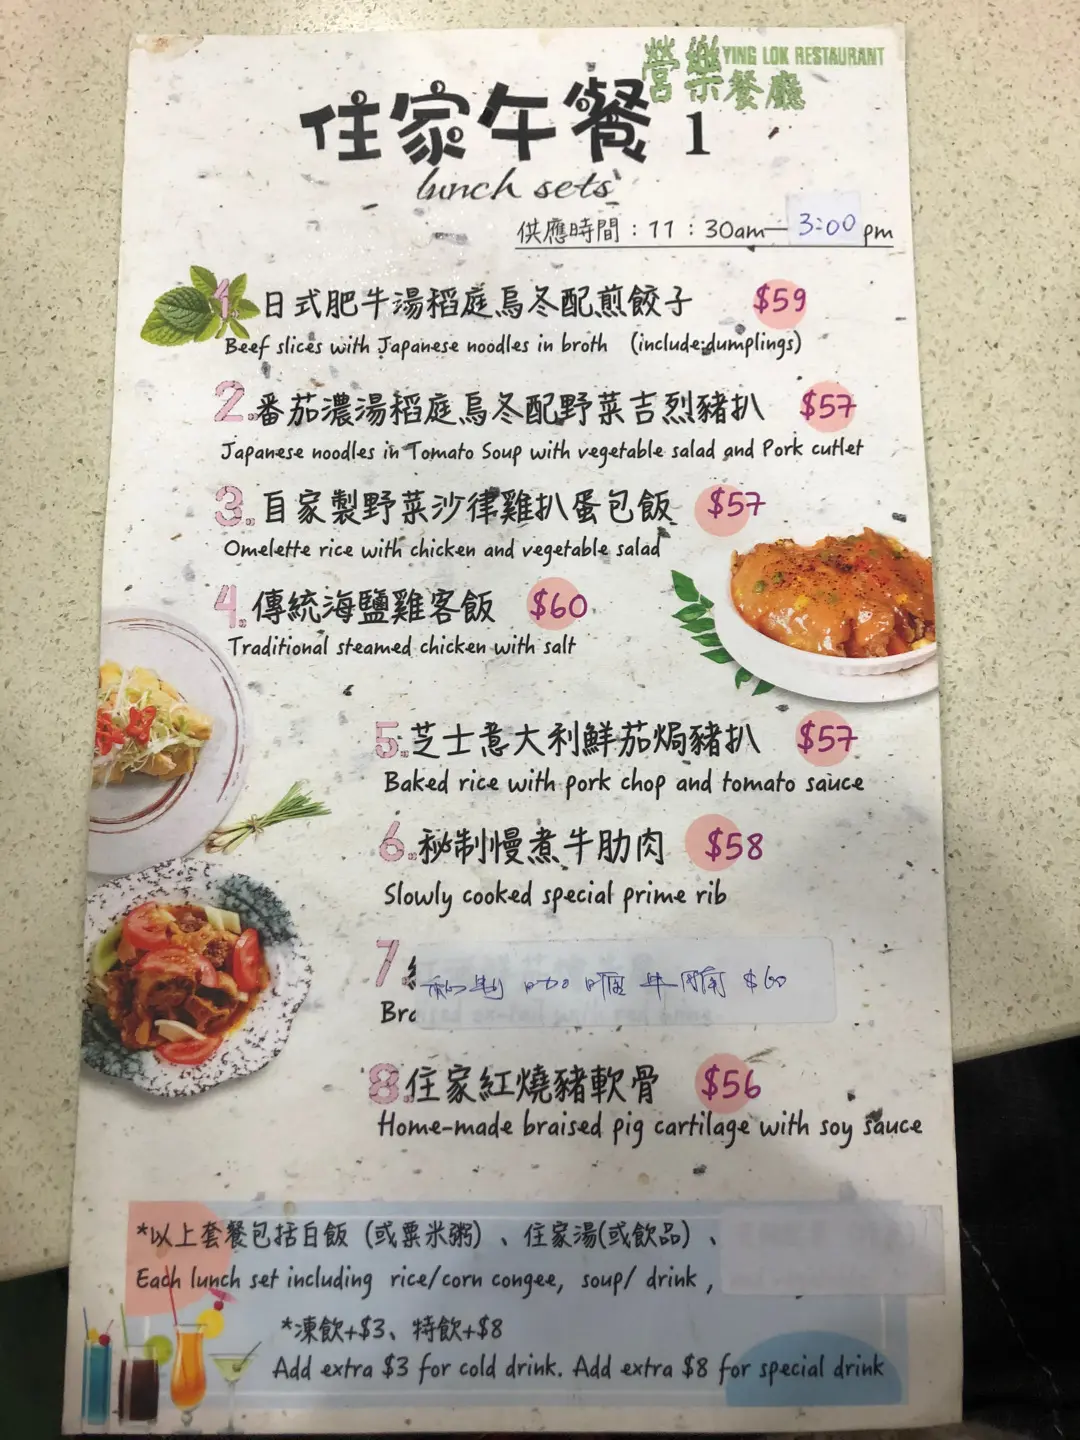 營樂 YING LOK RESTAURANT
餐廳
住家午餐 1
lunch sets
供應時間：11：30am—3:00pm
1. 日式肥牛湯稻庭烏冬配煎餃子 $59
Beef slices with Japanese noodles in broth (include:dumplings)
2. 番茄濃湯稻庭烏冬配野菜吉烈豬扒 $57
Japanese noodles in Tomato Soup with vegetable salad and Pork cutlet
3. 自家製野菜沙律雞扒蛋包飯 $57
Omelette rice with chicken and vegetable salad
4. 傳統海鹽雞客飯 $60
Traditional steamed chicken with salt
5. 芝士意大利鮮茄焗豬扒 $57
Baked rice with pork chop and tomato sauce
6. 秘制慢煮牛肋肉 $58
Slowly cooked special prime rib
7 秘製咖喱牛腩 $60
8. 住家紅燒豬軟骨 $56
Home-made braised pig cartilage with soy sauce
*以上套餐包括白飯（或粟米粥）、住家湯(或飲品)、
Each lunch set including rice/corn congee, soup/ drink ,
*凍飲+$3、特飲+$8
Add extra $3 for cold drink. Add extra $8 for special drink